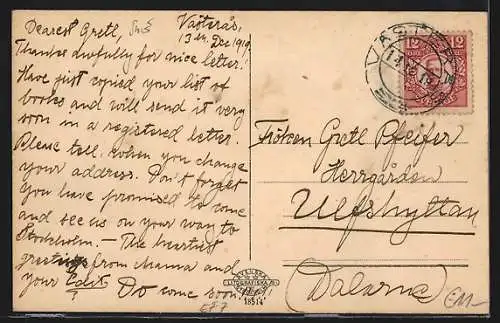 Dearest Gretl,
Västerås,
13th Dec 1919
Thanks awfully for nice letter!
Have just copied your list of
books and will send it very
soon in a registered letter.
Please tell, when you change
your address. Don't forget
you have promised to come
and see us on your way to
Stockholm. — The heartiest
greetings from mama and
your Edit. Do come soon!
Fröken Gretl Pfeifer
Herrgården
Ulfshyttan
(Dalarne)
12 12
VÄSTERÅS
18514